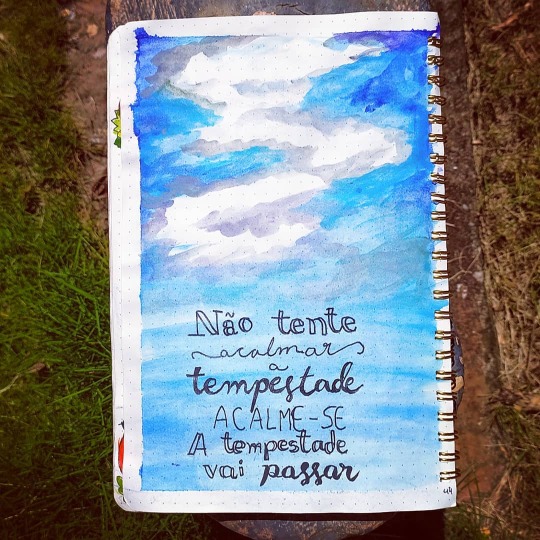 Não tente
acalmar
a
tempestade
ACALME-SE
A tempestade
vai passar
44